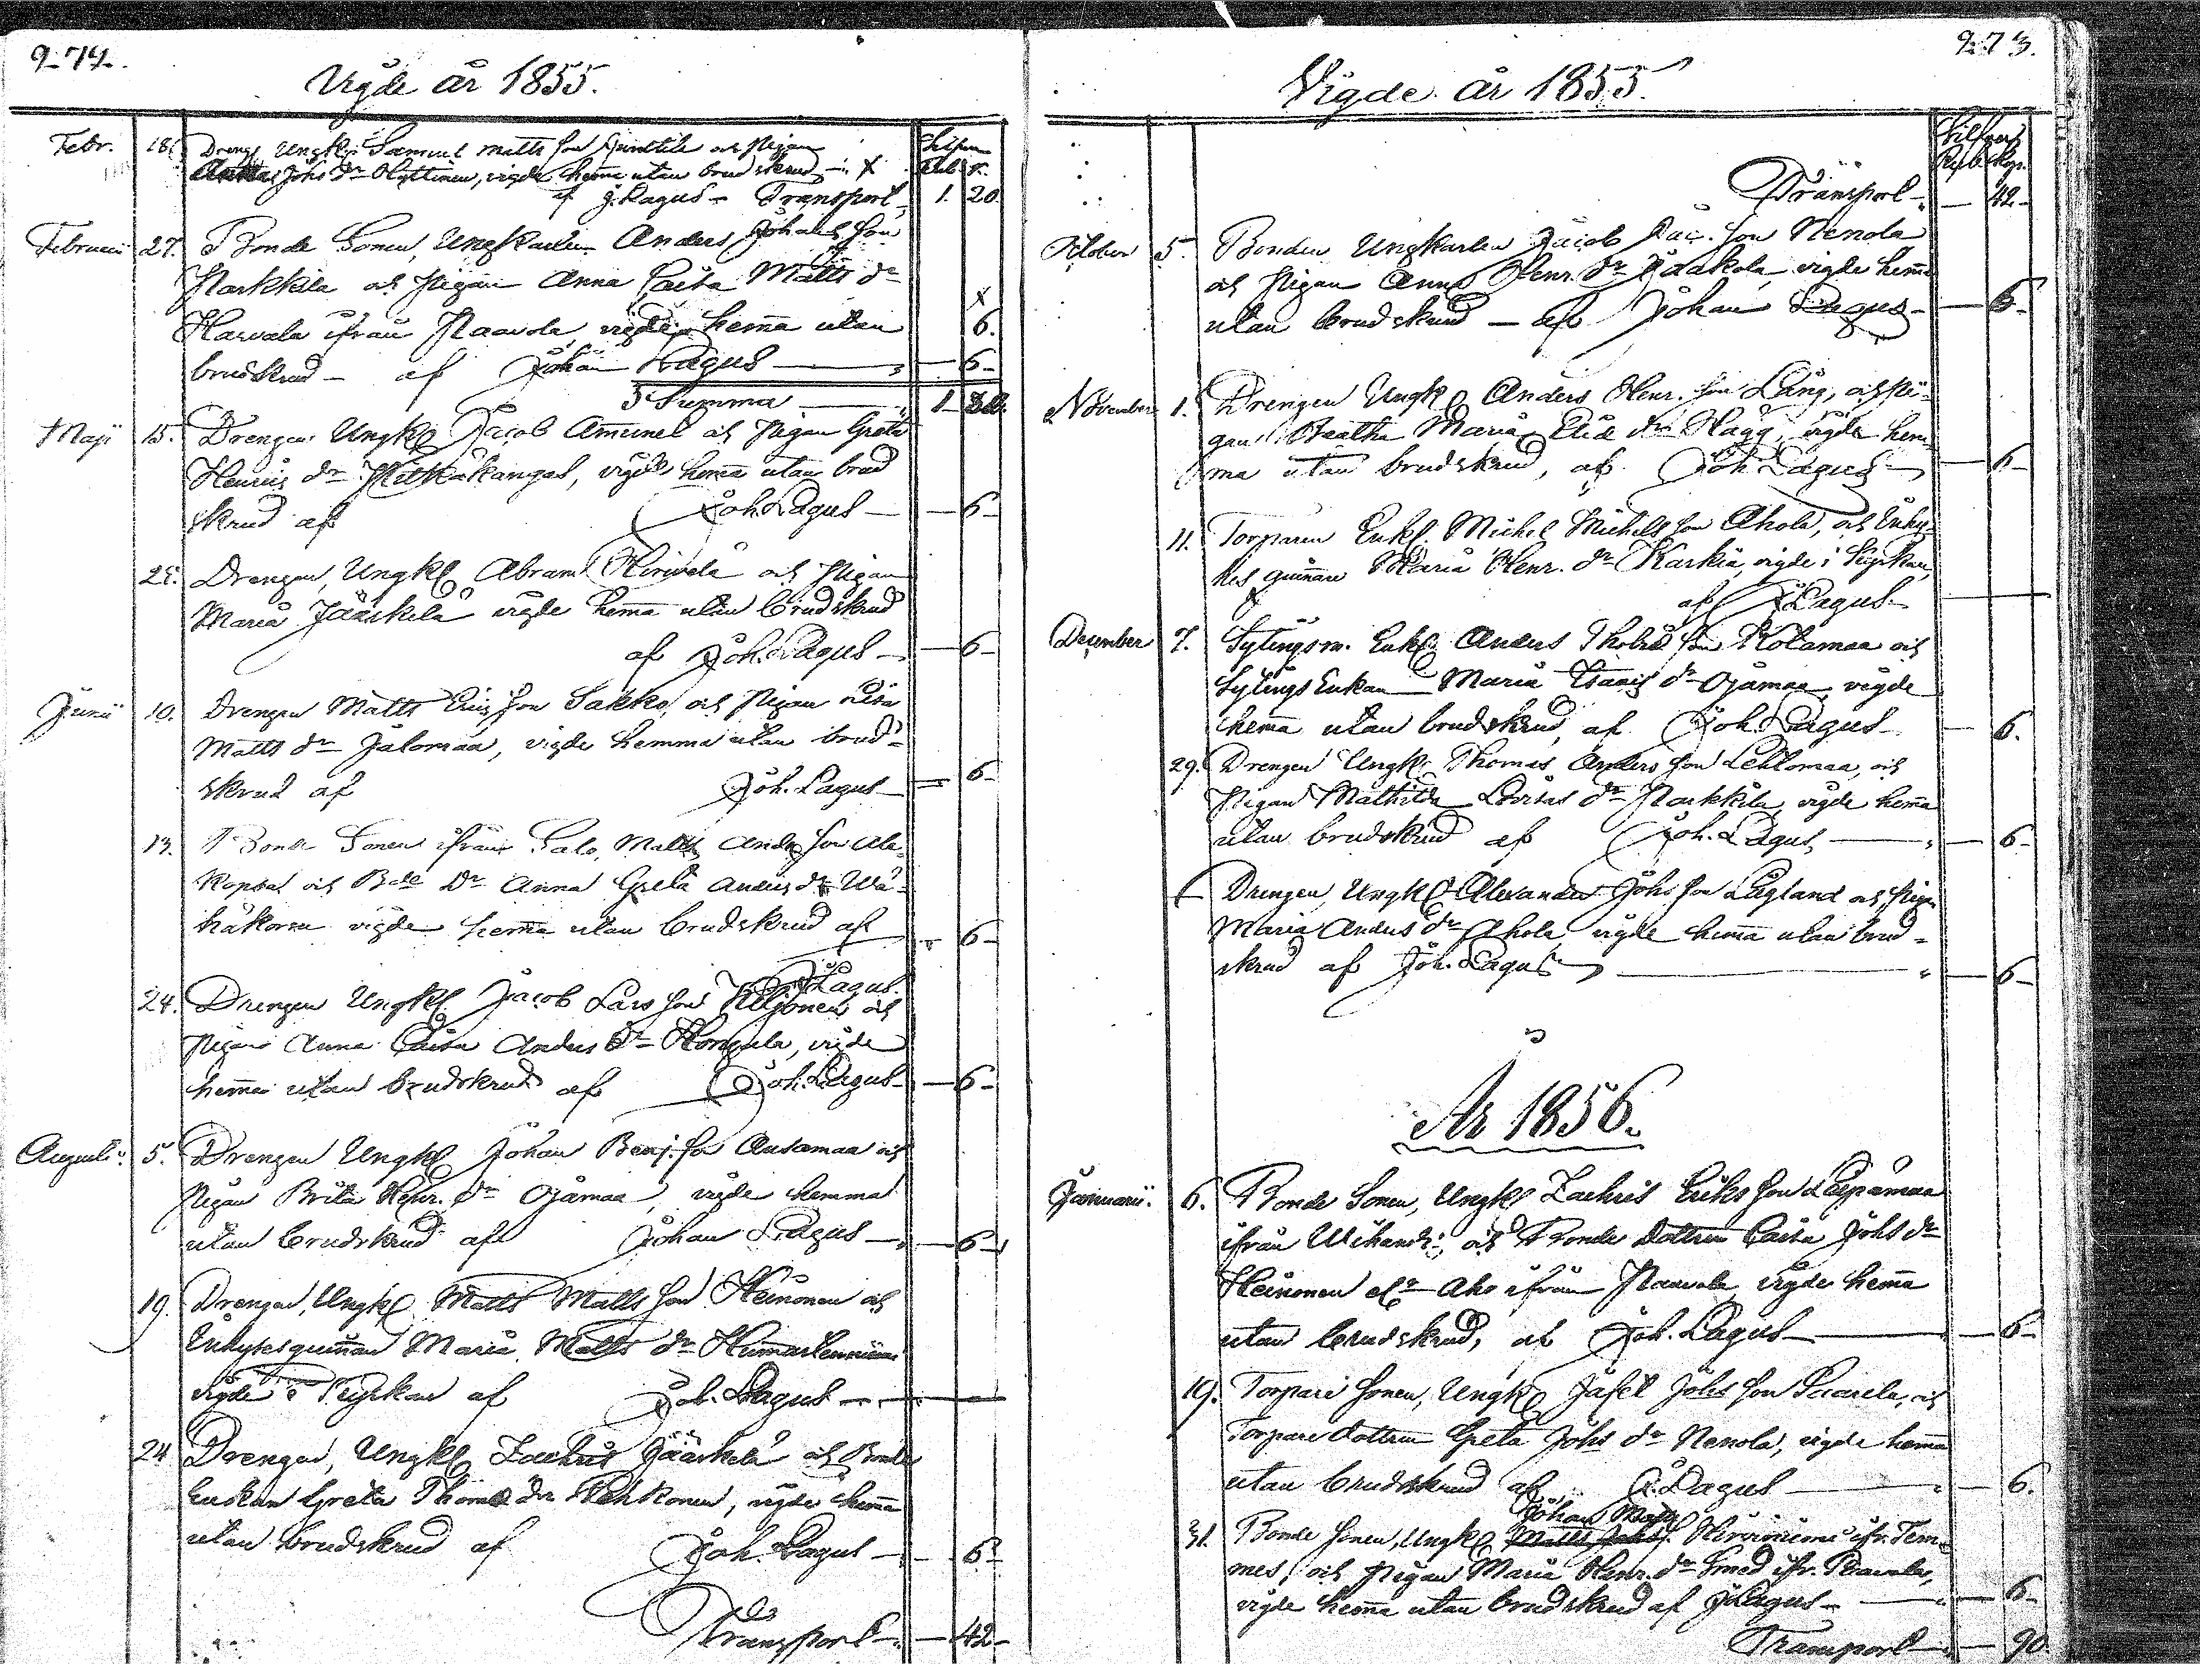 974.
Vigde år 1855.
Febr. 18. Dreng. Ungk. Samuel Matts son och Pigan
Johs dr Hyttinen, vigde hemma utan brudskrud
Silfver
Rub. k.
af J. Lagus - Transport 1. 20.
Februarii 27. Bonde Sonen, Ungkarlen Anders Johans son
Markkila och Pigan Anna Caisa Matts dr
Harvala ifrån Paavola, vigde hemma utan 6.
brudskrud - af Johan Lagus - 6 -
Summa 1
Maji 15. Drengen Ungk. Jacob Ammunet och Pigan Greta
Henrics dr Pitkäkangas, vigde hemma utan brud
skrud af Joh. Lagus - 6 -
Drengen, Ungk. Abram Hirvelä och Pigan
Maria Jääskelä vigde hemma utan brudskrud
af Joh. Lagus - 6 -
Junii 10. Drengen Matts Erics son Sakko, och Pigan
Matts dr Jälomaa, vigde hemma utan brud-
skrud af Joh. Lagus - 6 -
13. Bonde Sonen ifrån Salo, Matts Anders son Ala-
kopsa och Bde Dr Anna Greta Anders dr
vigde hemma utan brudskrud af - 6 -
Lagus.
24. Drengen Ungk. Jacob Lars son Kiljonen och
Pigan Anna Caisa Anders dr Honkala, vigde
hemma utan brudskrud af Joh. Lagus - 6 -
Augusti 5. Drengen Ungk. Johan Benj. son Ansamaa och
Pigan Brita Henr. dr Ojamaa, vigde hemma
utan brudskrud af Johan Lagus - 6 -
19. Drengen, Ungk. Matts Matts son Heinonen och
Inhyses quinnan Maria Matts dr
vigde i Kyrkan af Joh. Lagus -
24 Drengen, Ungk. Zachris Jääskelä och Bonde
Enkan Greta Thoms dr Pehkonen, vigde hemma
utan brudskrud af Joh. Lagus - 6 -
Transport - 42 -
973.
Vigde år 1855.
Silfver
Rub. kop.
Transport - 42 -
October 5. Bonden Ungkarlen Jacob Jac. son Nenola
och Pigan Anna Henr. dr Laakola, vigde hemma
utan brudskrud - af Johan Lagus - 6 -
November 1. Drengen Ungk. Anders Henr. son Lång, och Pi-
gan Beatha Maria Elid dr Hägg, vigde hem-
ma utan brudskrud, af Joh. Lagus - 6 -
11. Torparen Enkl. Michel Michels son Ahola, och Inhy-
ses quinnan Maria Henr. dr Karkia, vigde i Kyrkan,
af J. Lagus -
December 7. Sytingsm. Enkl. Anders Thomas son Kotamaa och
Sytings Enkan Maria Isaacs dr Ojamaa, vigde
hemma utan brudskrud, af Joh. Lagus - 6.
29. Drengen Ungk. Thomas Anders son Lehtomaa, och
Pigan Mathilda Lovisas dr Markkila, vigde hemma
utan brudskrud af Joh. Lagus, - 6 -
Drengen, Ungk. Alexander Johs son Lagland och Pigan
Maria Anders dr Ahola, vigde hemma utan brud-
skrud af Joh. Lagus - 6 -
År 1856.
Januarii. 6. Bonde Sonen, Ungk. Zachris Eriks son Leipämaa
ifrån Wihandi, och Bonde Dottren Caisa Johs dr
Heinonen elr Aho ifrån Paavola, vigde hemma
utan brudskrud, af Joh. Lagus - 6 -
19. Torpare sonen, Ungk. Jafet Johs son Paarela, och
Torpare dottren Greta Johs dr Nenola, vigde hemma
utan brudskrud af J. Lagus - 6.
Johan Matts
31. Bonde sonen, Ungk. Matts Johs s. Hirvoniemi ifr. Tem-
mes, och Pigan Maria Henr. dr Smed ifr. Paavola,
vigde hemma utan brudskrud af J. Lagus - 6 -
Transport - 90.